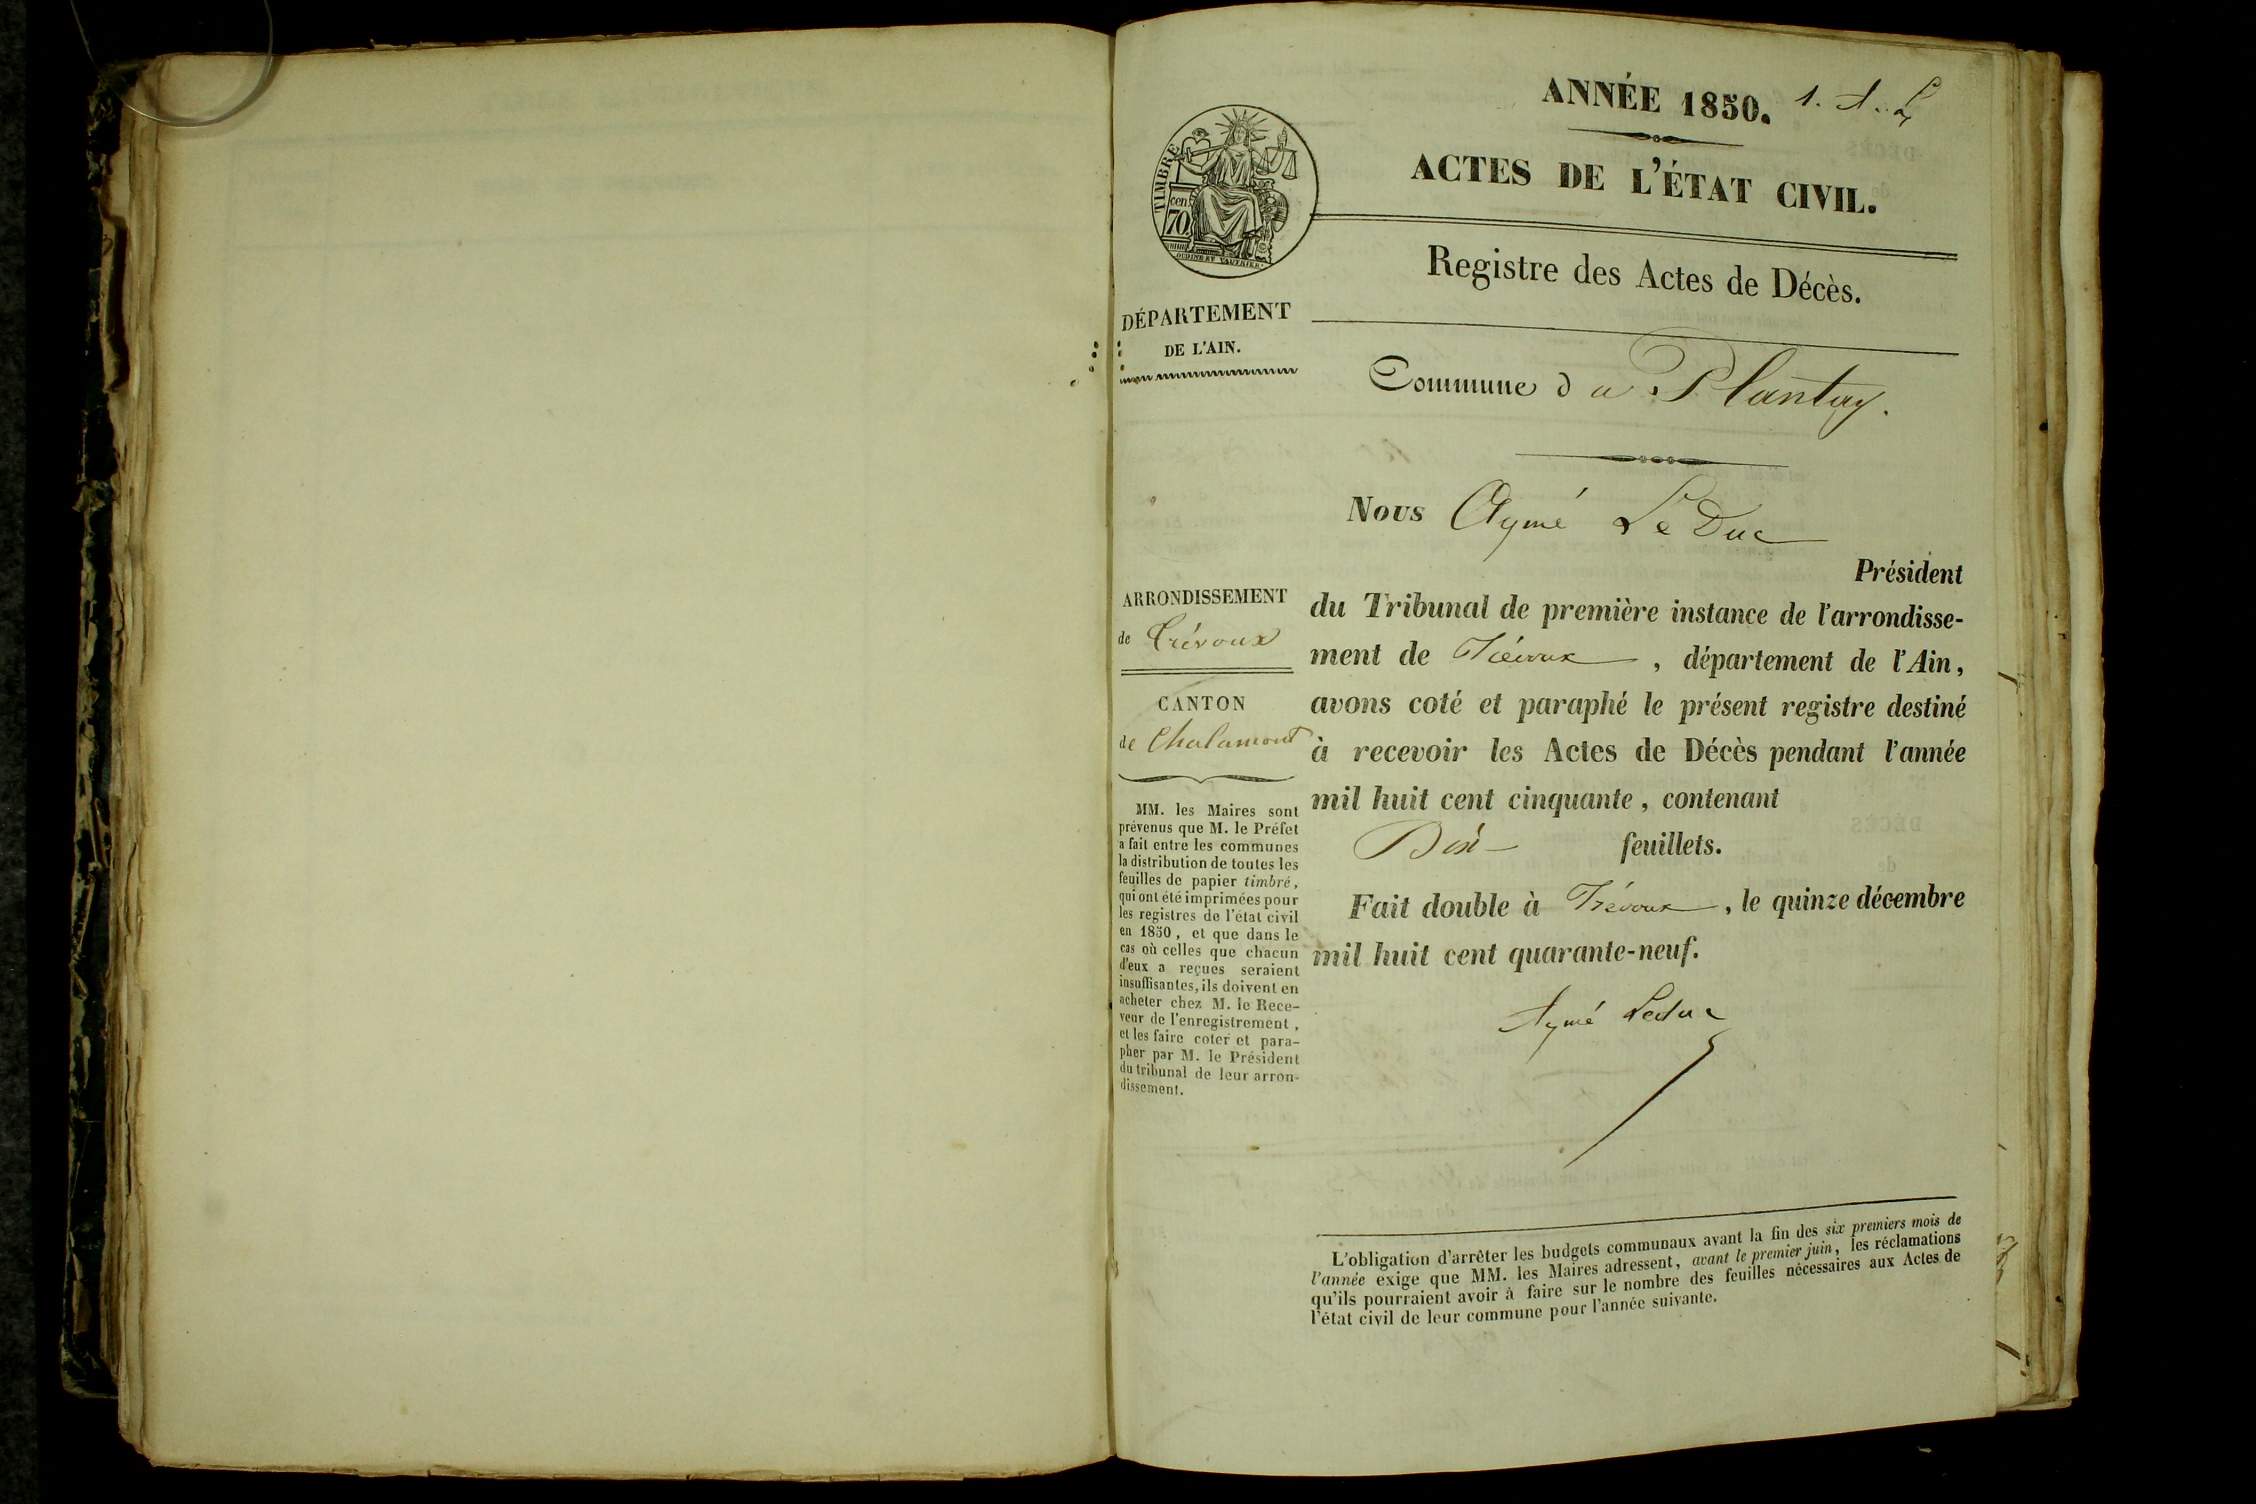 ANNÉE 1850. 1. A. L
ACTES DE L'ÉTAT CIVIL.
TIMBRE
cen
70
OUDINE ET VAUTRIER
Registre des Actes de Décès.
DÉPARTEMENT
DE L'AIN.
Commune du Plantay.
Nous Aymé Le Duc
Président
du Tribunal de première instance de l'arrondisse-
ment de Trévoux, département de l'Ain,
avons coté et paraphé le présent registre destiné
à recevoir les Actes de Décès pendant l'année
mil huit cent cinquante, contenant
feuillets.
Fait double à Trévoux, le quinze décembre
mil huit cent quarante-neuf.
Aymé Leduc
ARRONDISSEMENT
de Trévoux
CANTON
de Chalamont
MM. les Maires sont
prévenus que M. le Préfet
a fait entre les communes
la distribution de toutes les
feuilles de papier timbré,
qui ont été imprimées pour
les registres de l'état civil
en 1850, et que dans le
cas où celles que chacun
d'eux a reçues seraient
insuffisantes, ils doivent en
acheter chez M. le Rece-
veur de l'enregistrement,
et les faire coter et para-
pher par M. le Président
du tribunal de leur arron-
dissement.
L'obligation d'arrêter les budgets communaux avant la fin des six premiers mois de
l'année exige que MM. les Maires adressent, avant le premier juin, les réclamations
qu'ils pourraient avoir à faire sur le nombre des feuilles nécessaires aux Actes de
l'état civil de leur commune pour l'année suivante.